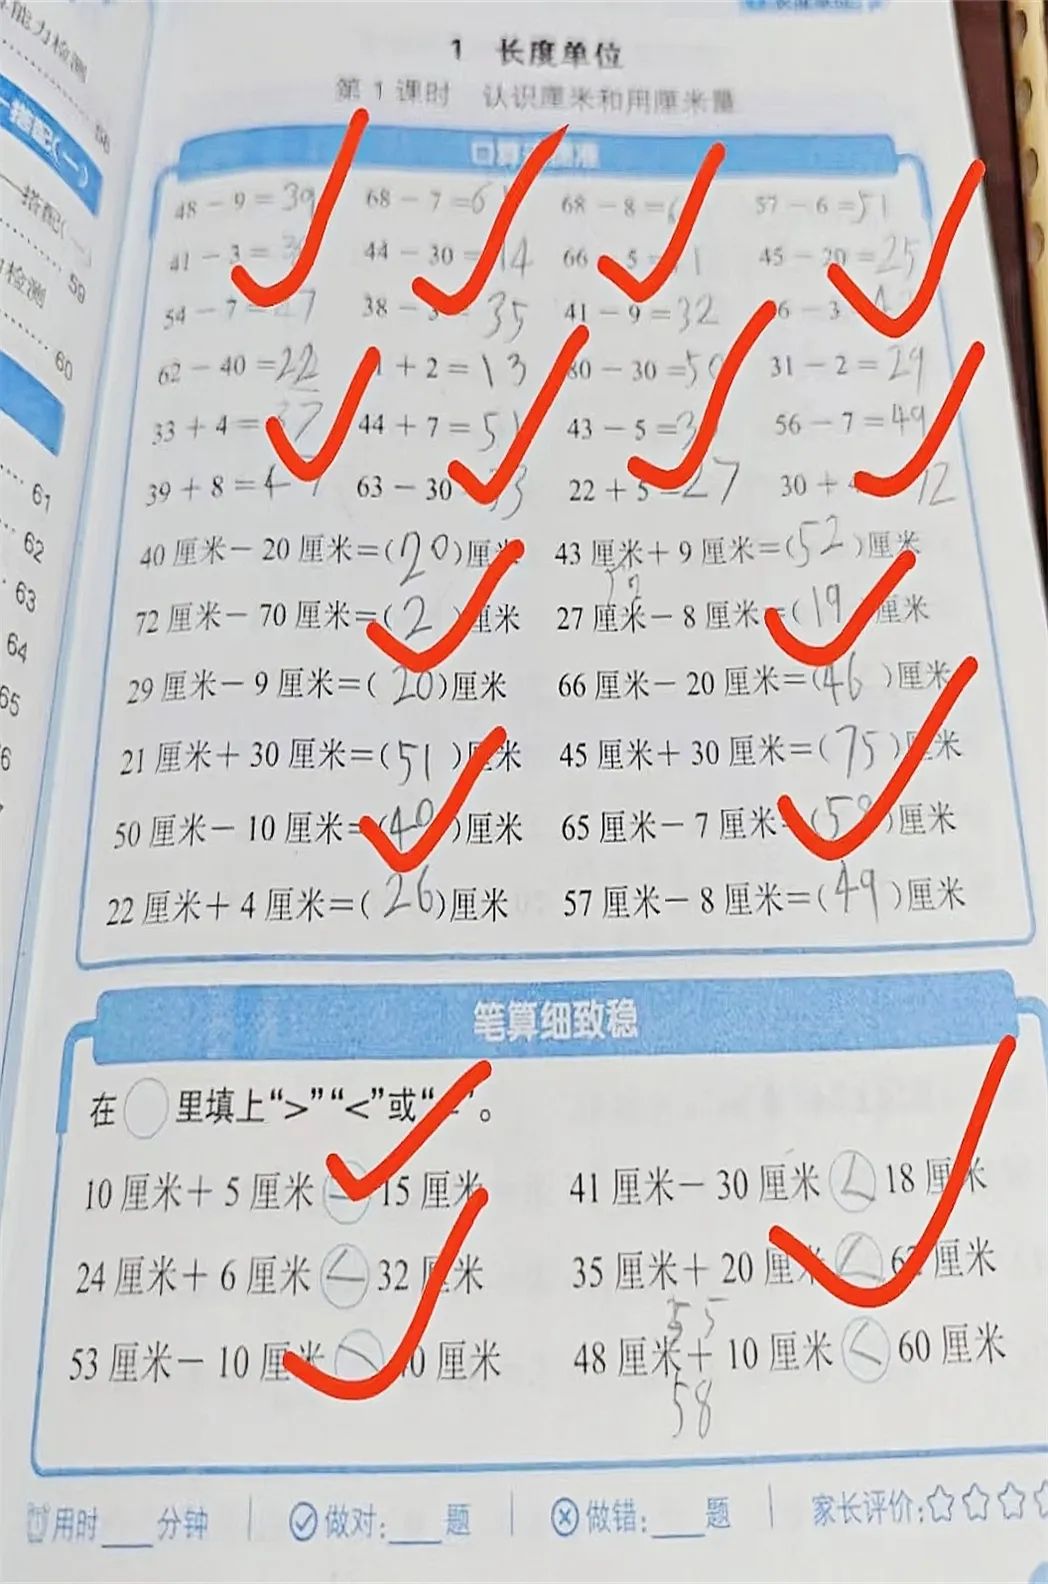 能力检测
58
搭配(一)
搭配(一)
59
检测
60
61
62
63
64
65
1 长度单位
第1课时 认识厘米和用厘米量
口算
48-9=39 68-7=6 68-8=6 57-6=51
41-3=3 44-30=14 66-5= 1 45-20=25
54-7= 7 38-3=35 41-9=32 6-3
62-40=22 1+2=13 80-30=50 31-2=29
33+4=37 44+7=51 43-5=3 56-7=49
39+8=4 63-30 33 22+5=27 30+ 12
40厘米-20厘米=(20)厘米 43厘米+9厘米=(52)厘米
72厘米-70厘米=(2)厘米 27厘米-8厘米=(19)厘米
29厘米-9厘米=(20)厘米 66厘米-20厘米=(46)厘米
21厘米+30厘米=(51)厘米 45厘米+30厘米=(75)厘米
50厘米-10厘米=(40)厘米 65厘米-7厘米=(58)厘米
22厘米+4厘米=(26)厘米 57厘米-8厘米=(49)厘米
笔算细致稳
在○里填上“>”“<”或“=”。
10厘米+5厘米 = 15厘米 41厘米-30厘米<18厘米
24厘米+6厘米<32厘米 35厘米+20厘米<6 厘米
55
53厘米-10厘米> 0厘米 48厘米+10厘米<60厘米
58
用时___分钟 做对:___题 做错:___题 家长评价:☆☆☆☆